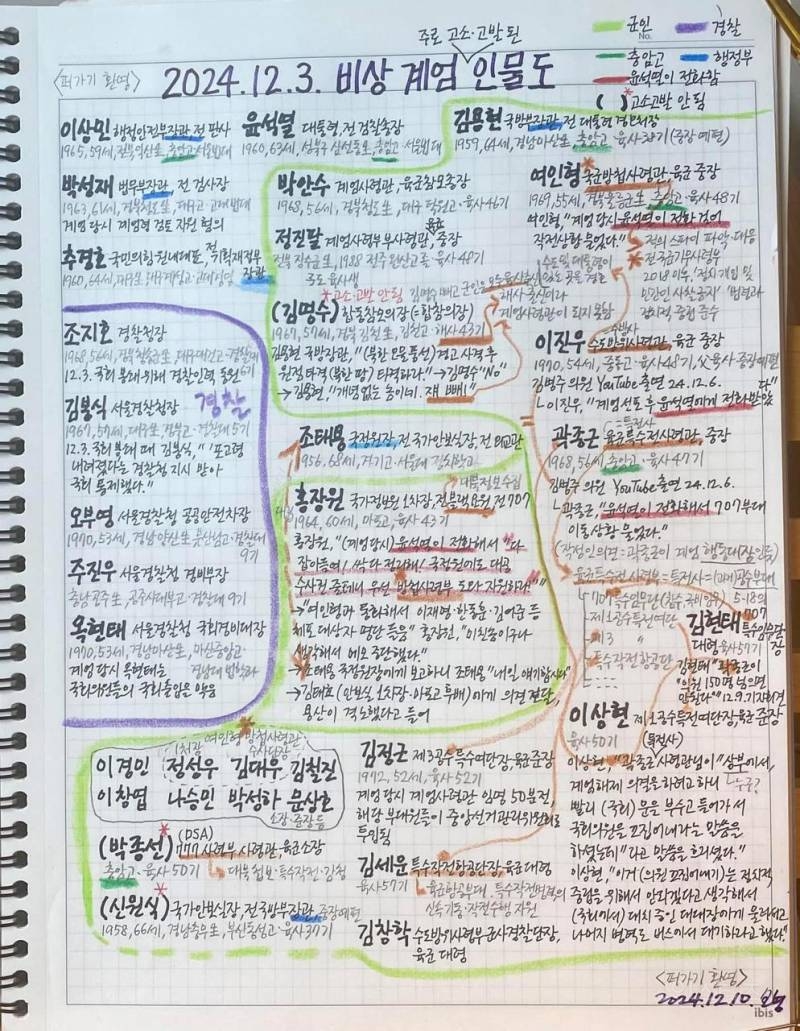 주로 고소·고발 된
<퍼가기 환영>
2024.12.3. 비상 계엄 인물도
군인
No.
경찰
충암고
행정부
윤석열이 전화함
( )* 고소고발 안됨
이상민 행정안전부장관, 전 판사
1965, 59세, 전북익산生, 충암고·서울법대
박성재 법무부장관, 전 검사장
1963, 61세, 경북청도生, 대구고·고대법대
계엄 당시 계엄령 검토 자원 혐의
추경호 국민의힘 원내대표, 전 기획재정부
장관
윤석열 대통령, 전 검찰총장
1960, 63세, 성북구 삼선동生, 충암고·서울법대
김용현 국방부장관, 전 대통령 경호처장
1959, 64세, 경남마산生, 충암고·육사38기 (중장예편)
박안수 계엄사령관, 육군참모총장
1968, 56세, 경북청도生, 대구 덕원고·육사46기
정진팔 계엄사령부부사령관, 중장
* 고소·고발 안됨
(김명수) 합동참모의장 (=합참의장)
1967, 57세, 경북김천生, 김천고·해사43기
김용현 국방장관, "(북한 오물풍선) 경고 사격 후
원점 타격(북한 땅) 타격하라." → 김명수 "No"
→ 김용현, "개념없는 놈이네. 쟤 빼!"
계엄사령관이 되지 못함
여인형 국군방첩사령관, 육군 중장
1969, 55세, 충암고·육사48기
여인형, "계엄 당시 윤석열이 전화 걸어
작전사항 물었다."
이진우 수도방위사령관, 육군 중장
1970, 54세, 중동고·육사48기, 父육사·중장예편
김병주 의원 YouTube 출연 24.12.6.
ㄴ이진우, "계엄선포 후 윤석열에게 전화받았다"
곽종근 육군특수전사령관, 중장
1968, 56세, 충남고·육사47기
김병주 의원 YouTube 출연 24.12.6.
ㄴ곽종근, "윤석열이 전화해서 707부대
이동상황 물었다."
경찰
조지호 경찰청장
1968, 56세, 경북청송生, 대구대건고·경찰대
6기
12.3. 국회 봉쇄 위해 경찰인력 동원
김봉식 서울경찰청장
1967, 57세, 대구生, 경북고·경찰대 5기
12.3. 국회 봉쇄 때 김봉식, "포고령
내려졌다는 경찰청 지시 받아
국회 통제했다."
오부명 서울경찰청 공공안전차장
9기
주진우 서울경찰청 경비부장
충남공주生, 공주사대부고·경찰대 9기
목현태 서울경찰청 국회경비대장
계엄 당시 목현태는
국회의원들의 국회출입을 막음
조태용 국정원장, 전 국가안보실장, 전 외교관
1956, 68세, 경기고·서울대 정치학과
대북정보수집
홍장원 국가정보원 1차장, 전 블랙요원, 전 707
1964, 60세, 마포고, 육사43기
홍장원, "(계엄당시) 윤석열이 전화해서 "다
잡아들여! 싹다 정리해! 국정원에도 대공
수사권 줄테니 우선 방첩사령부 도와 자원하라!""
→ "여인형과 통화해서 이재명·한동훈·김어준 등
체포 대상자 명단 들음" 홍장원, "미친놈이구나
생각해서 메모 중단했다."
조태용 국정원장에게 보고하니 조태용 "내일 얘기합시다"
→ 김태효 (안보실 1차장·마포고 후배)에게 의견 전달,
용산이 격노했다고 들어
707특수임무단
제1공수특전여단
특수작전항공단
김현태 707
특수임무단장
대령 육사57기
김현태 "곽종근이
"의원 150명 넘으면
안된다"" 12.9. 기자회견
이상현 제1공수특전여단장, 육군 준장
(특전사)
육사50기
이상현, "곽종근 사령관님이 "상부에서,
누구?
계엄해제 의결을 하려고 하니
빨리 (국회) 문을 부수고 들어가서
국회의원을 끄집어내라는 말씀을
하셨는데" 라고 말씀을 흐리셨다."
이상현, "이거 (의원 끄집어내기)는 정치적
중립을 위해서 안되겠다고 생각해서
(국회에서) 대치 중인 대대장에게 물러서고
나머지 병력도 버스에서 대기하라고 했다."
여인형 방첩사령관
이경민 정성우 김대우 김철진
이창엽 나승민 박성하 문상호
소장·준장등
(박종선)* (DSA)
777 사령부 사령관, 육군소장
충암고·육사50기
(신원식)* 국가안보실장, 전 국방부장관, 중장예편
1958, 66세, 경남통영生, 부산동성고·육사37기
김정근 제3공수특수여단장, 육군 준장
1972, 52세, 육사52기
계엄 당시 계엄사령관 임명 50분전,
해당 부대원들이 중앙선거관리위원회로
투입됨
김세운 특수작전항공단장, 육군 대령
육사57기
육군항공부대 특수작전병력의
신속기동·작전수행 자원
김창학 수도방위사령부 군사경찰단장,
육군 대령
<퍼가기 환영>
2024.12.10.
ibis